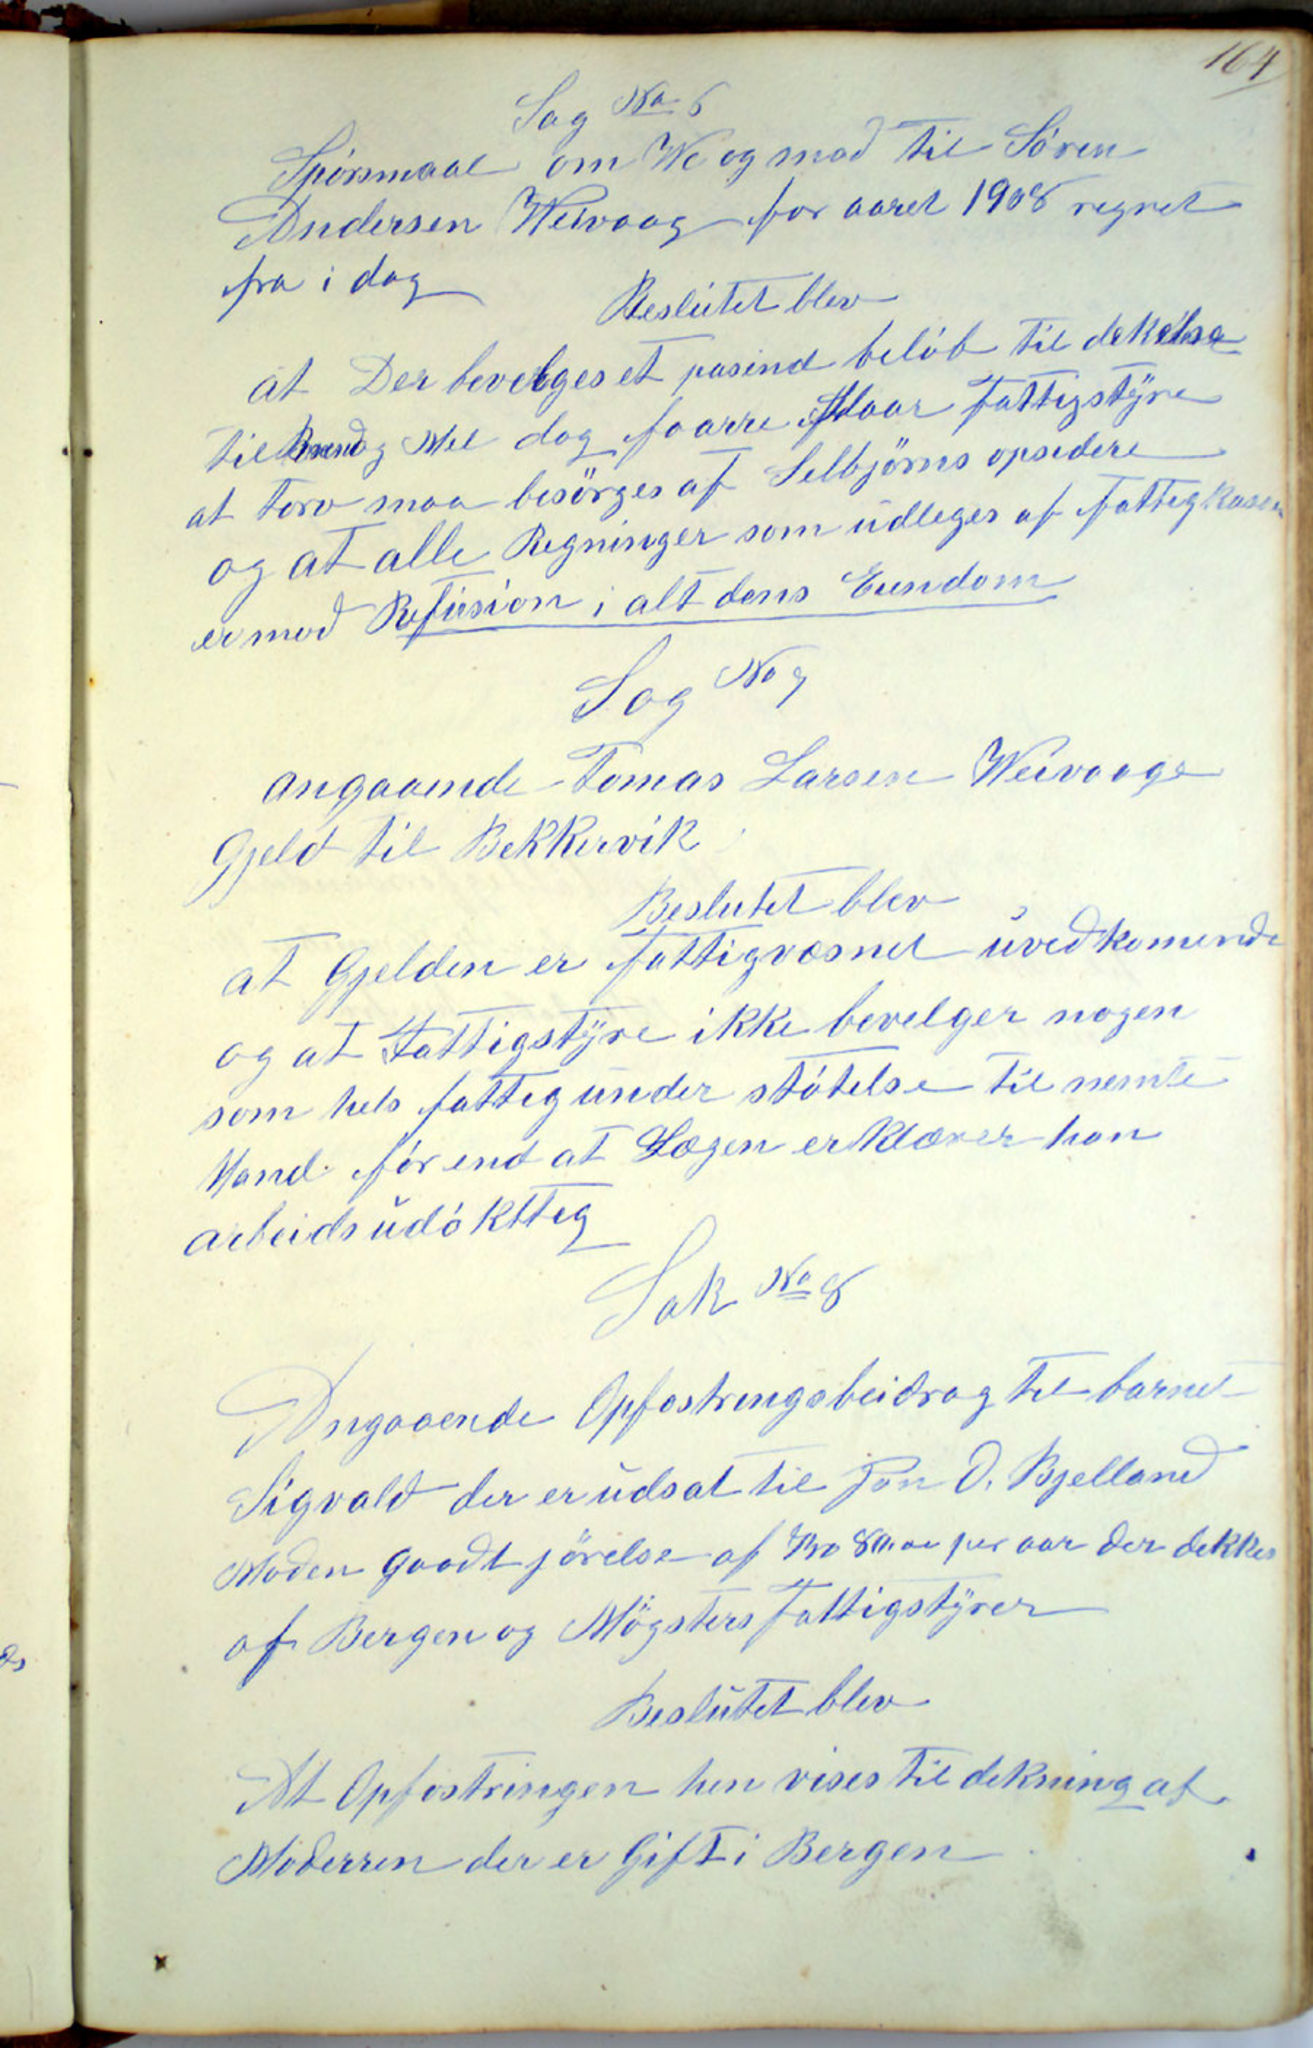 164
Sag No 6
Spörsmaal om We og mad til Sören
Andersen Weivaag for aaret 1908 regnet
fra i dag
Beslutet blev
at Der bevelges et pasend belöb til dekelse
til Brend og Mel dog faarre Vlaar fattigstyre
at torv maa besörges af Selbjörns opsedere
og at alle Regninger som udleges af fattigkasen
er mod Refusion i alt dens Eiendom
Sag No 7
angaaende Tomas Larsen Weivaags
Gjeld til Bekkervik
Beslutet blev
at Gjelden er fattigvæsnet uvedkomende
og at Fattigstyre ikke bevelger nogen
som hels fattig under stötelse til nemte
Mand för end at Lægen erklærer han
arbeids udökttig
Sak No 8
Angaaende Opfostrengsbeidrag til barnet
Sigvald der er udsat til Jon O. Bjelland
Moden gaadtjörelse af Kro 80.00 per aar der dekkes
af Bergen og Mögsters fattigstyrer
Beslutet blev
At Opfostringen hen vises til dekning af
Moderren der er Gift i Bergen